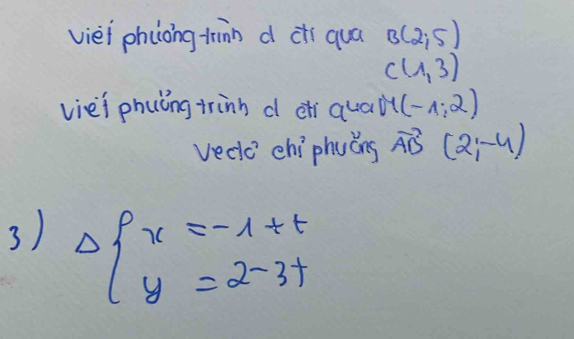 viết phương trình d đi qua B(2;5)
C(1,3)
viết phương trình d đi qua M(-1;2)
vectơ chỉ phương AB (2;-4)
3) Δ { x = -1 + t
y = 2 - 3t